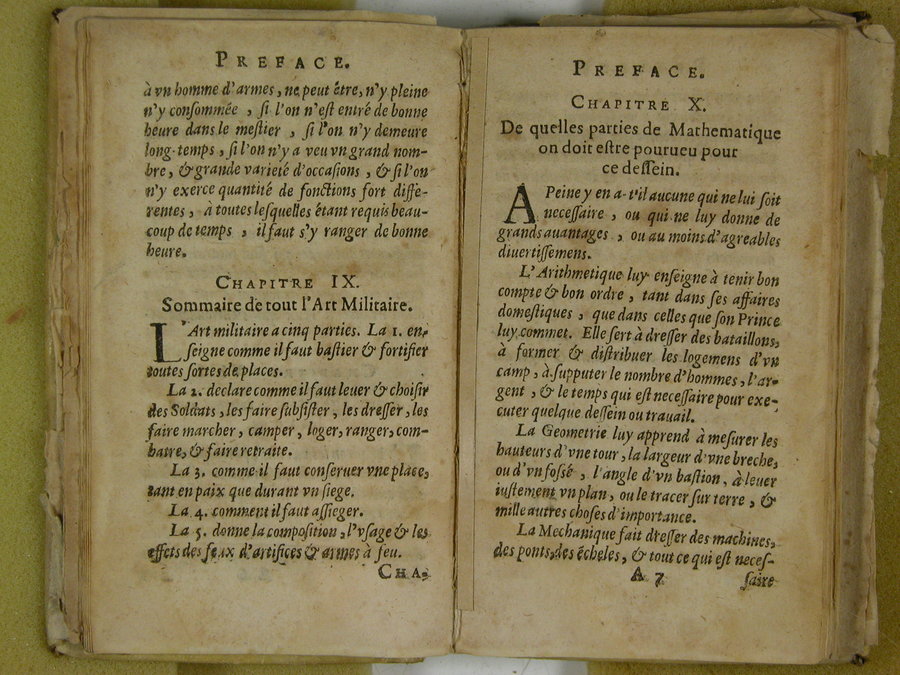 PREFACE.
à vn homme d'armes, ne peut étre, n'y pleine
n'y conſommée, ſi l'on n'eſt entré de bonne
heure dans le meſtier, ſi l'on n'y demeure
long-temps, ſi l'on n'y a veu vn grand nom-
bre, & grande varieté d'occaſions, & ſi l'on
n'y exerce quantité de fonctions fort diffe-
rentes, à toutes leſquelles étant requis beau-
coup de temps, il faut s'y ranger de bonne
heure.
CHAPITRE IX.
Sommaire de tout l'Art Militaire.
L'Art militaire a cinq parties. La 1. en-
ſeigne comme il faut baſtier & fortifier
toutes ſortes de places.
La 2. declare comme il faut leuer & choiſir
des Soldats, les faire ſubſiſter, les dreſſer, les
faire marcher, camper, loger, ranger, com-
batre, & faire retraite.
La 3. comme il faut conſeruer vne place,
tant en paix que durant vn ſiege.
La 4. comment il faut aſſieger.
La 5. donne la compoſition, l'vſage & les
effets des feux d'artifices & armes à feu.
CHA-
PREFACE.
CHAPITRE X.
De quelles parties de Mathematique
on doit eſtre pourueu pour
ce deſſein.
A Peine y en a-t'il aucune qui ne lui ſoit
neceſſaire, ou qui ne luy donne de
grands auantages, ou au moins d'agreables
diuertiſſemens.
L'Arithmetique luy enſeigne à tenir bon
compte & bon ordre, tant dans ſes affaires
domeſtiques, que dans celles que ſon Prince
luy commet. Elle ſert à dreſſer des bataillons,
à former & diſtribuer les logemens d'vn
camp, à ſupputer le nombre d'hommes, l'ar-
gent, & le temps qui eſt neceſſaire pour exe-
cuter quelque deſſein ou trauail.
La Geometrie luy apprend à meſurer les
hauteurs d'vne tour, la largeur d'vne breche,
ou d'vn foſſé, l'angle d'vn baſtion, à leuer
iuſtement vn plan, ou le tracer ſur terre, &
mille autres choſes d'importance.
La Mechanique fait dreſſer des machines,
des ponts, des écheles, & tout ce qui eſt neceſ-
A 7 ſaire